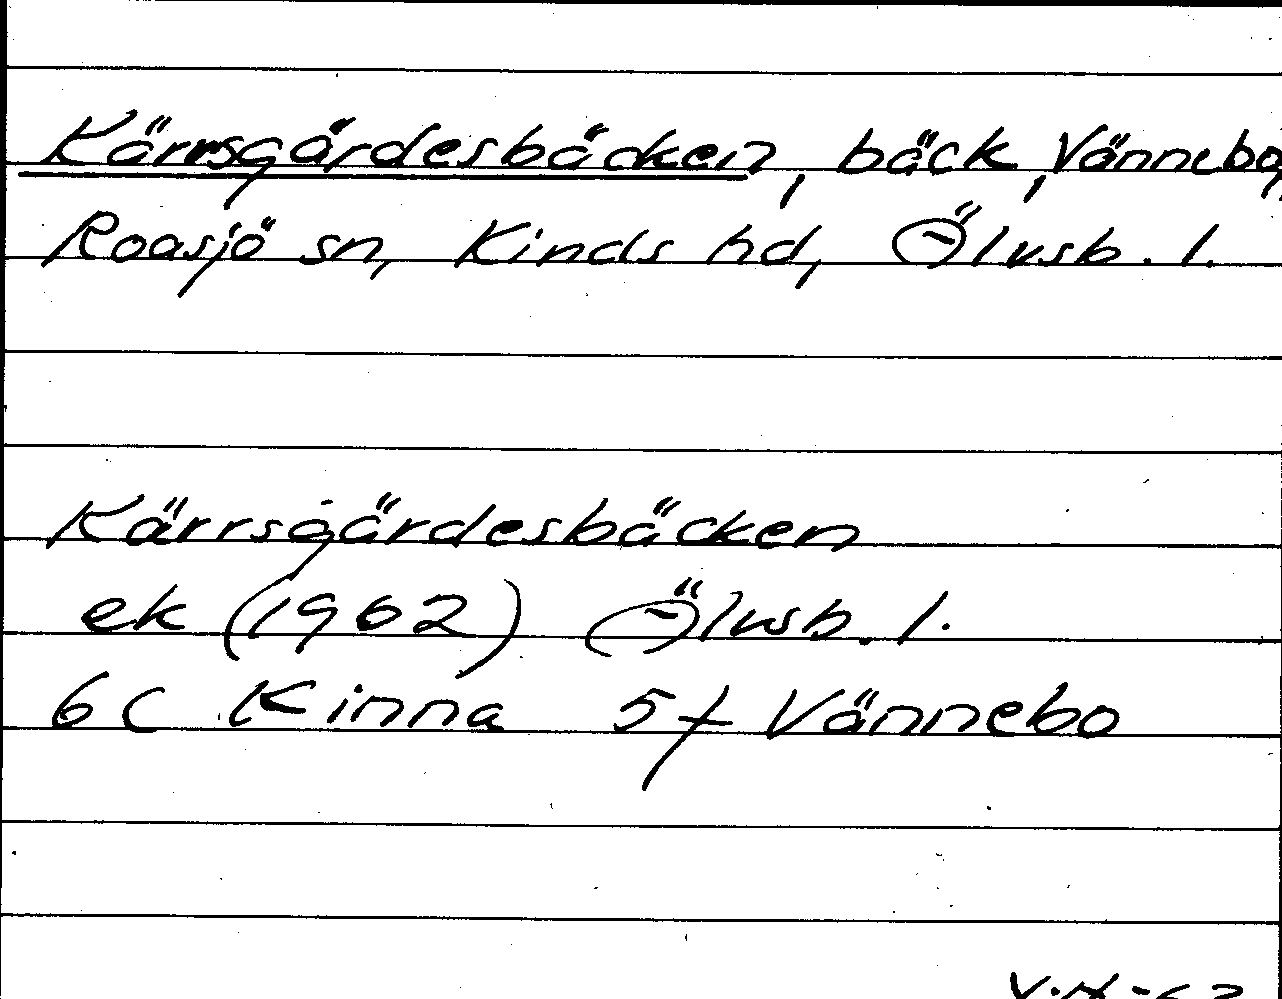 Kärrsgärdesbäcken, bäck, Vännebo,
Roasjö sn, Kinds hd, Älvsb. l.
Kärrsgärdesbäcken
ek (1962) Älvsb. l.
6C Kinna 5f Vännebo